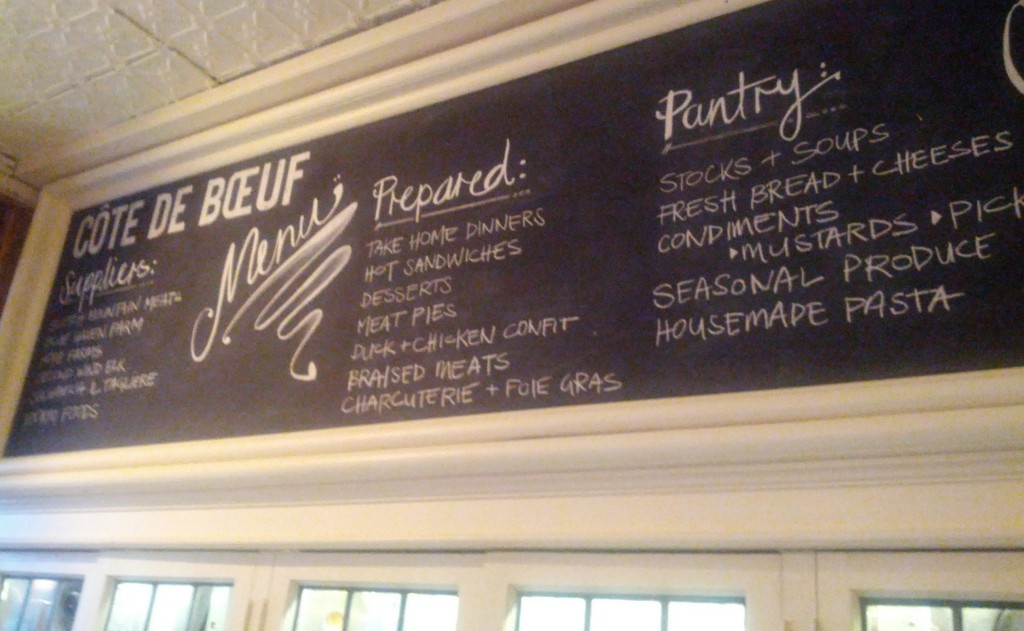 CÔTE DE BŒUF
Menu
Suppliers:
MOUNTAIN MEATS
HAVEN FARM
FARMS
WIND ELK
& TAGLIERE
FOODS
Prepared:
TAKE HOME DINNERS
HOT SANDWICHES
DESSERTS
MEAT PIES
DUCK + CHICKEN CONFIT
BRAISED MEATS
CHARCUTERIE + FOIE GRAS
Pantry:
STOCKS + SOUPS
FRESH BREAD + CHEESES
CONDIMENTS
▸MUSTARDS ▸PICK
SEASONAL PRODUCE
HOUSEMADE PASTA